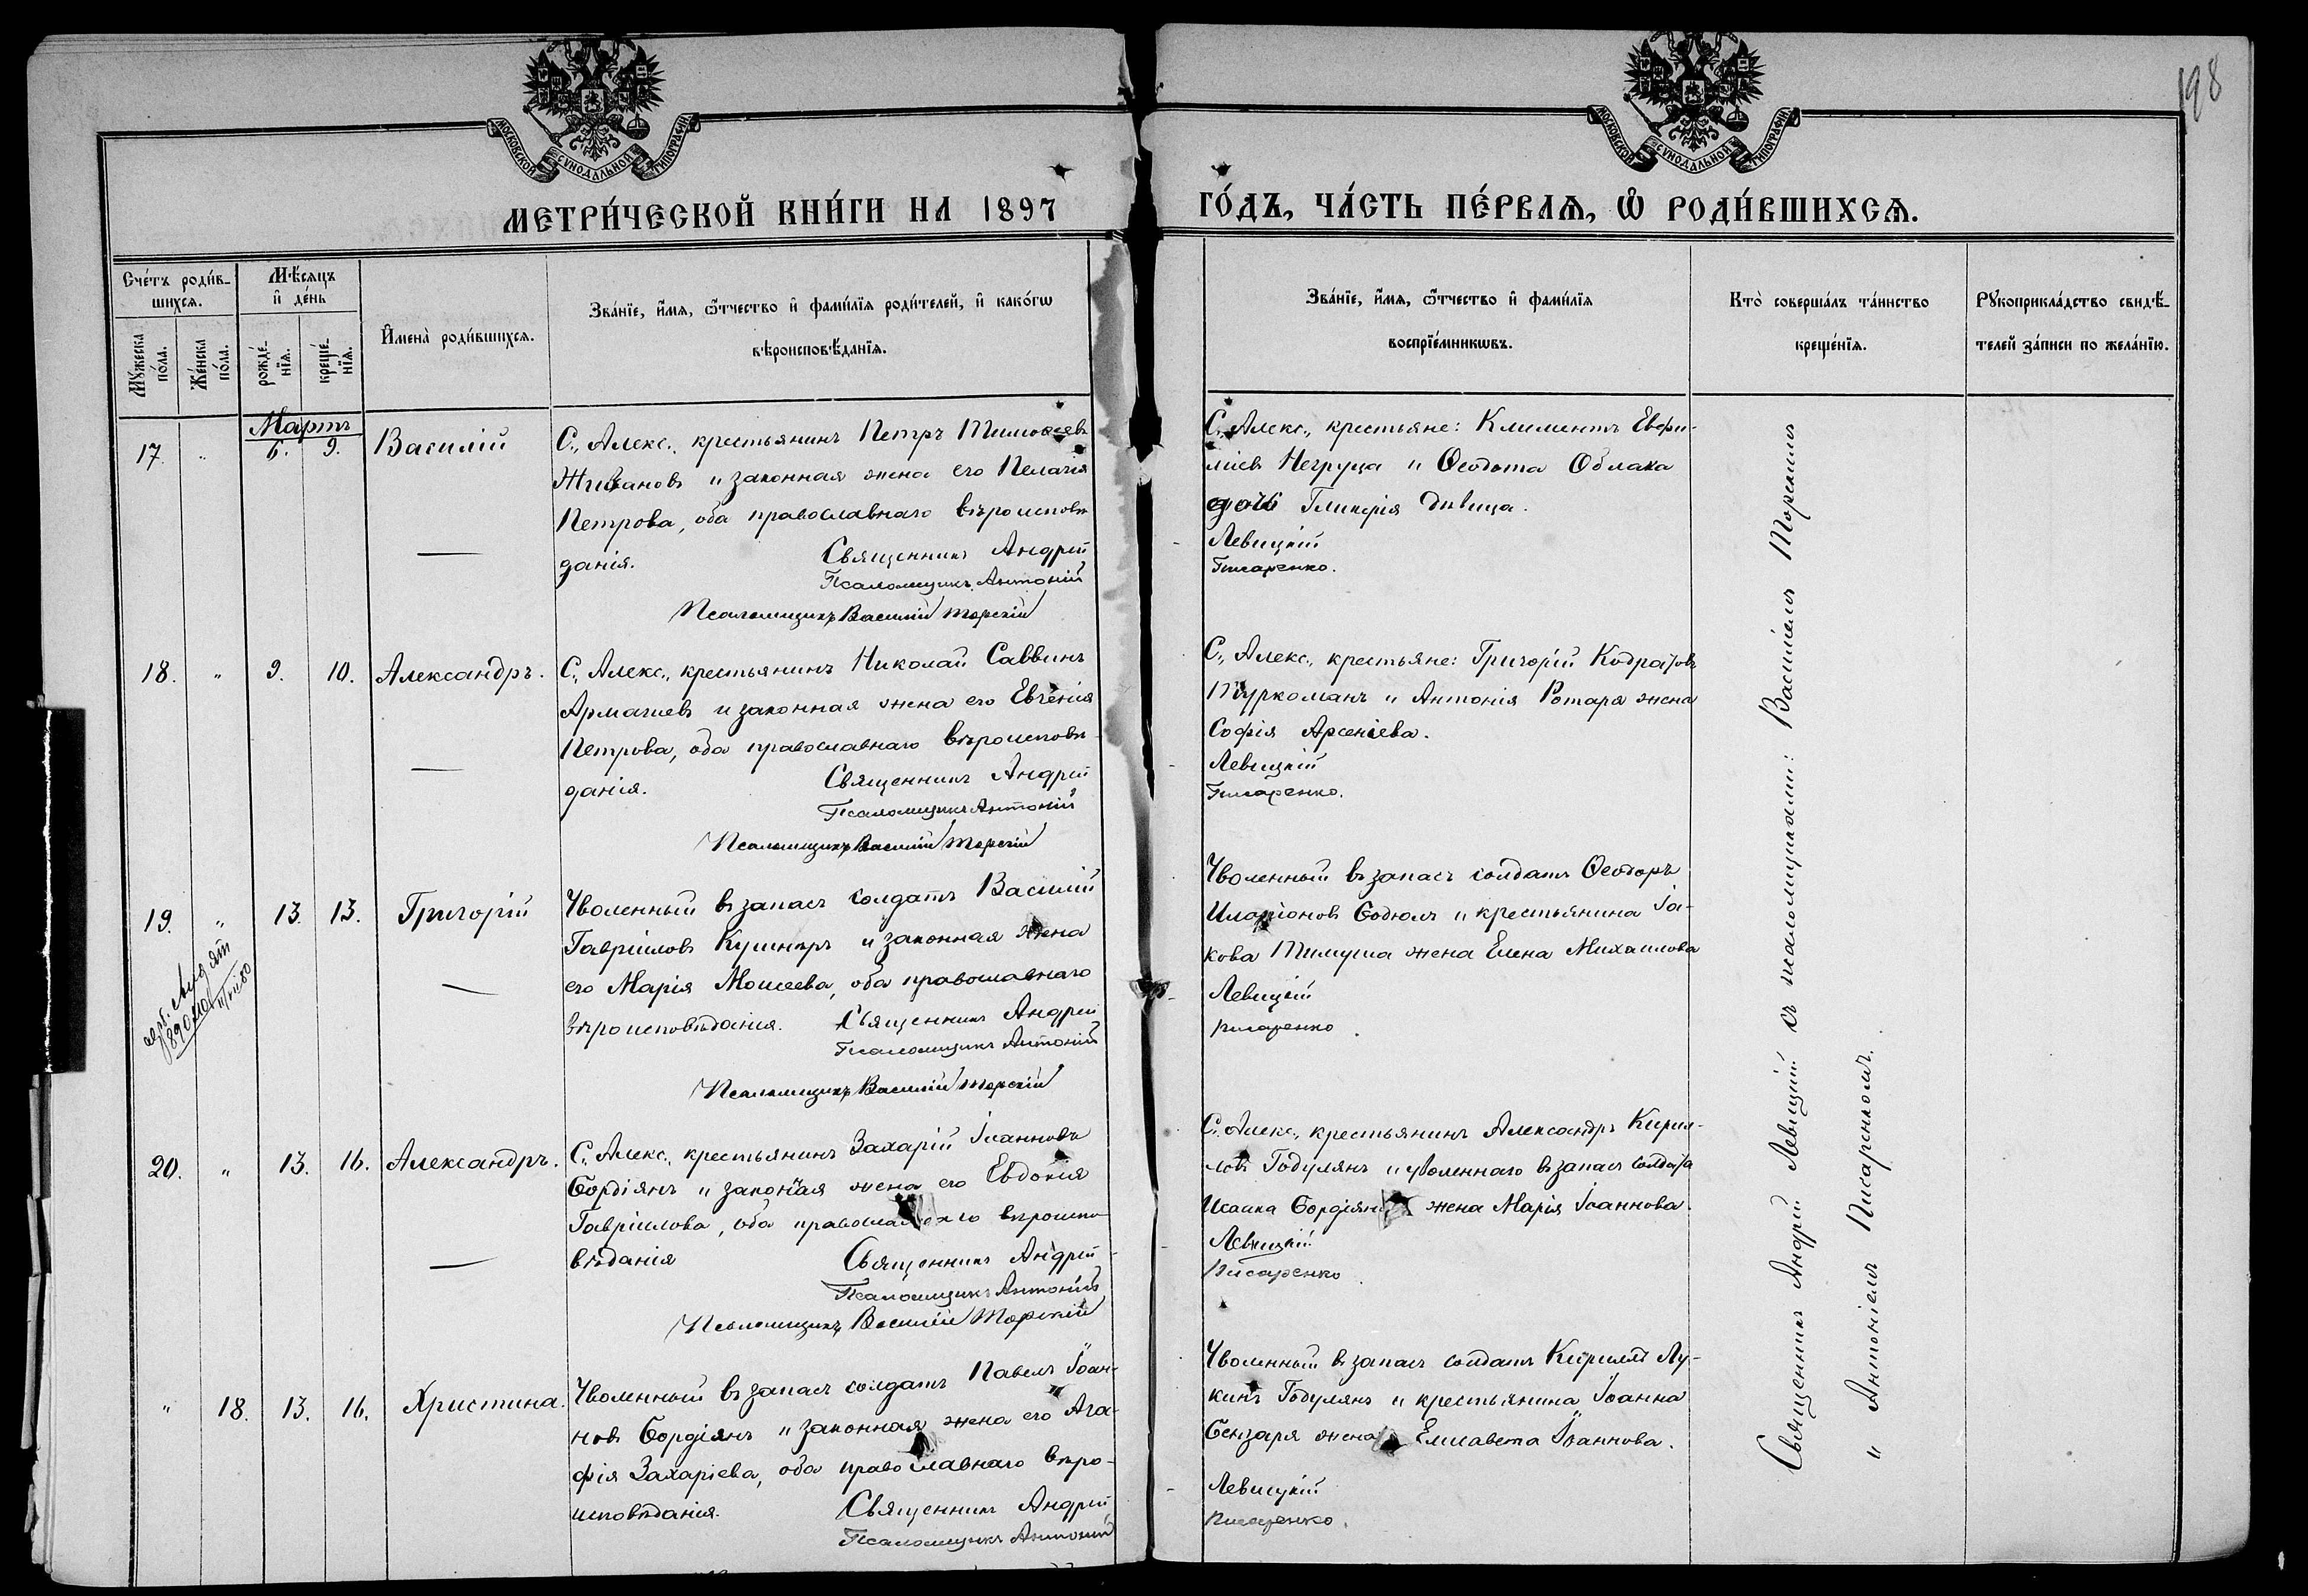 198
МОСКОВСКОЙ СѴНОДАЛЬНОЙ ТИПОГРАФІИ
МОСКОВСКОЙ СѴНОДАЛЬНОЙ ТИПОГРАФІИ
МЕТРИ́ЧЕСКОЙ КНИ́ГИ НА 1897 ГО́ДЪ, ЧА́СТЬ ПЕ́РВАѦ, Ѡ РОДИ́ВШИХСѦ.
Сче́тъ роди́в-
шихсѧ.
Мѣ́сѧцъ
и҆ де́нь
Мꙋ́жеска
по́ла.
Же́нска
по́ла.
рожде́-
нїѧ.
креще́-
нїѧ.
И҆мена̀ роди́вшихсѧ.
Зва́нїе, и҆́мѧ, ѻ҆́тчество и҆ фами́лїѧ роди́телей, и҆ како́гѡ
вѣроисповѣ́данїѧ.
Зва́нїе, и҆́мѧ, ѻ҆́тчество и҆ фами́лїѧ
воспрїе́мникѡвъ.
Кто̀ соверша́лъ та́инство
креще́нїѧ.
Рꙋкоприкла́дство свидѣ́-
телей за́писи по жела́нїю.
Мартъ
17. " 6. 9. Василій
С. Алекс., крестьянинъ Петръ Тимоѳеевъ
Живановъ и законная жена его Пелагія
Петрова, оба православнаго вѣроисповѣ-
данія. Священникъ Андрей
Псаломщикъ Антоній
Псаломщикъ Василій Торскій
С. Алекс., крестьяне: Климентъ Евфи-
міевъ Негруца и Ѳеодота Облака
дочь Гликерія дѣвица.
Левицкій
Писаренко.
18. " 9. 10. Александръ.
С. Алекс., крестьянинъ Николай Саввинъ
Армашевъ и законная жена его Евгенія
Петрова, оба православнаго вѣроисповѣ-
данія. Священникъ Андрей
Псаломщикъ Антоній
Псаломщикъ Василій Торскій
С. Алекс., крестьяне: Григорій Кодратовъ
Туркоманъ и Антонія Ротаря жена
Софія Арсеніева.
Левицкій
Писаренко.
19. " 13. 13. Григорій
Уволенный въ запасъ солдатъ Василій
Гавріиловъ Кушниръ и законная жена
его Марія Моисеева, оба православнаго
вѣроисповѣданія. Священникъ Андрей
Псаломщикъ Антоній
Псаломщикъ Василій Торскій
Уволенный въ запасъ солдатъ Ѳеодоръ
Иларіоновъ Бодюлъ и крестьянина Іа-
кова Тимуша жена Елена Михаилова
Левицкій
Писаренко.
20. " 13. 16. Александръ.
С. Алекс., крестьянинъ Захарій Іоанновъ
Бордіянъ и законная жена его Евдокія
Гавріилова, оба православнаго вѣроиспо-
вѣданія Священникъ Андрей
Псаломщикъ Антоній
Псаломщикъ Василій Торскій
С. Алекс., крестьянинъ Александръ Кирил-
ловъ Годулянъ и уволеннаго въ запасъ солдата
Исаака Бордіяна жена Марія Іоаннова.
Левицкій
Писаренко.
" 18. 13. 16. Христина.
Уволенный въ запасъ солдатъ Павелъ Іоан-
новъ Бордіянъ и законная жена его Ага-
фія Захаріева, оба православнаго вѣро-
исповѣданія. Священникъ Андрей
Псаломщикъ Антоній
Уволенный въ запасъ солдатъ Кириллъ Лу-
кинъ Годулянъ и крестьянина Іоанна
Бензаря жена Елисавета Іоаннова.
Левицкій
Писаренко.
Священникъ Андрей Левицкій съ псаломщиками: Василіемъ Торскимъ
и Антоніемъ Писаренкомъ.